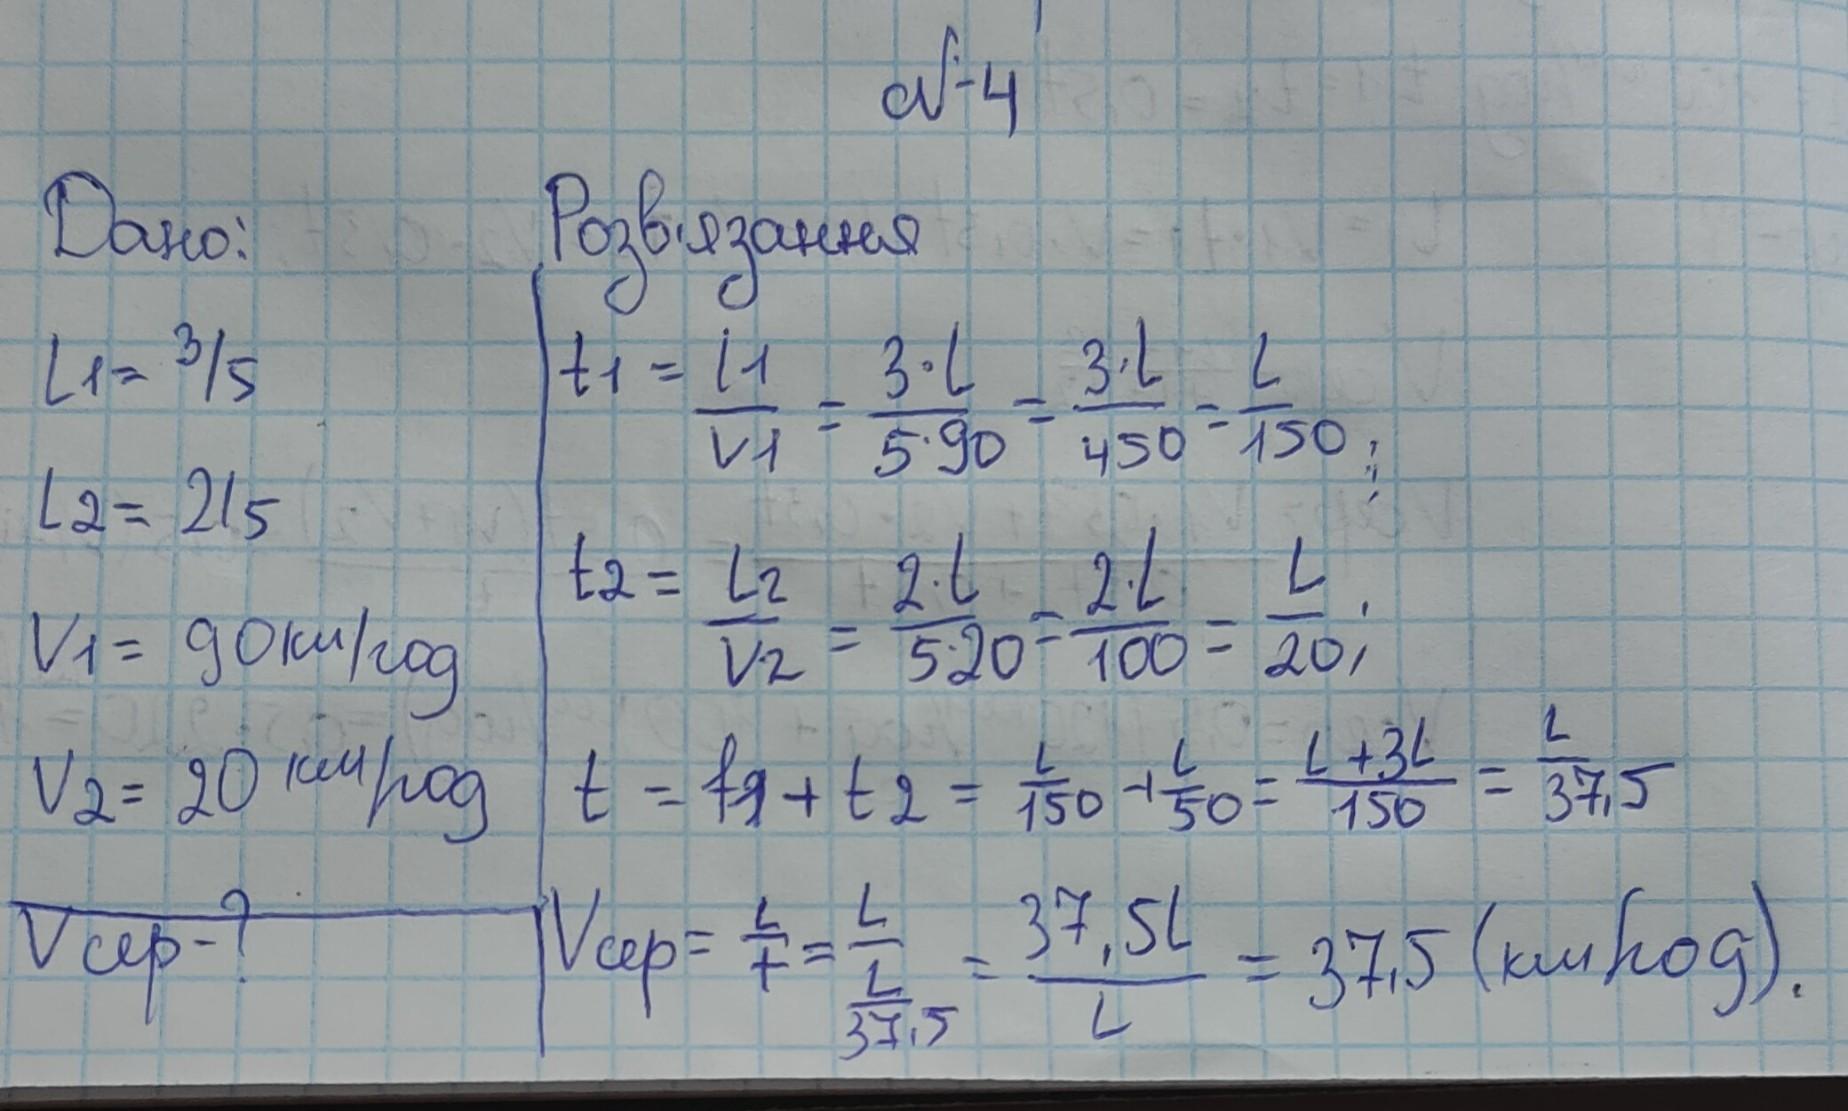 №4
Дано:
L1 = 3/5
L2 = 2/5
V1 = 90 км/год
V2 = 20 км/год
Vсер-?
Розв'язання
t1 = L1/V1 = 3·L/5·90 = 3·L/450 = L/150;
t2 = L2/V2 = 2·L/5·20 = 2·L/100 = L/20;
t = t1 + t2 = L/150 + L/50 = L+3L/150 = L/37,5
Vсер = L/t = L/L/37,5 = 37,5L/L = 37,5 (км/год).